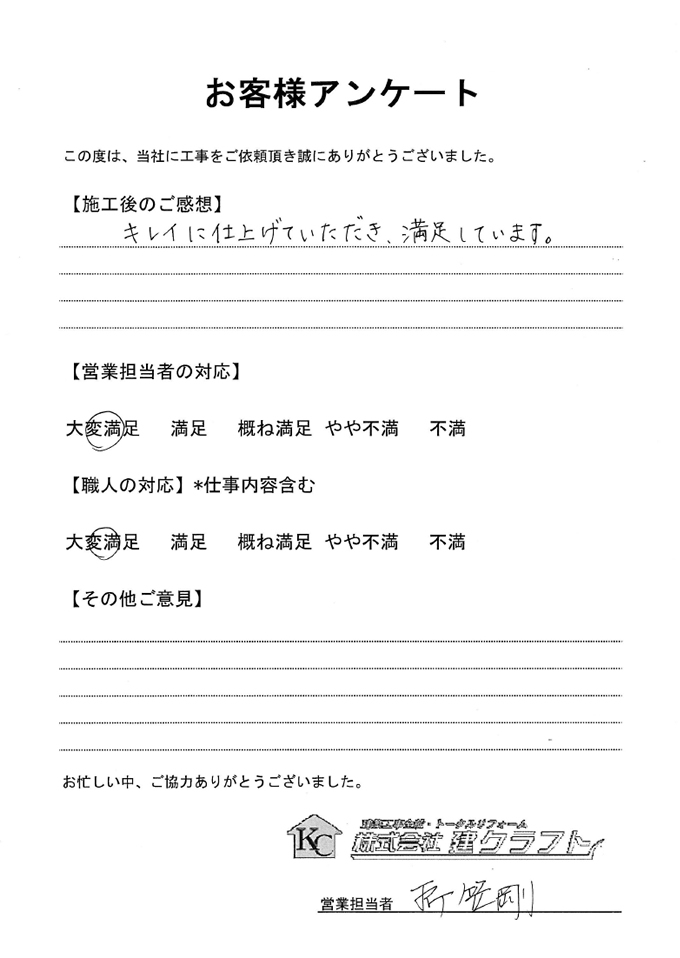 お客様アンケート
この度は、当社に工事をご依頼頂き誠にありがとうございました。
【施工後のご感想】
キレイに仕上げていただき、満足しています。
【営業担当者の対応】
大変満足 満足 概ね満足 やや不満 不満
【職人の対応】*仕事内容含む
大変満足 満足 概ね満足 やや不満 不満
【その他ご意見】
お忙しい中、ご協力ありがとうございました。
KC
建築工事全般・トータルリフォーム
株式会社 建クラフト
営業担当者